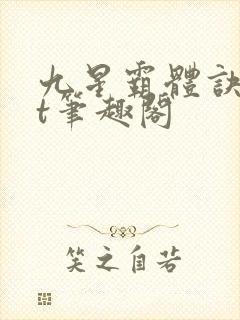 九星霸體訣
t筆趣閣
笑之自若